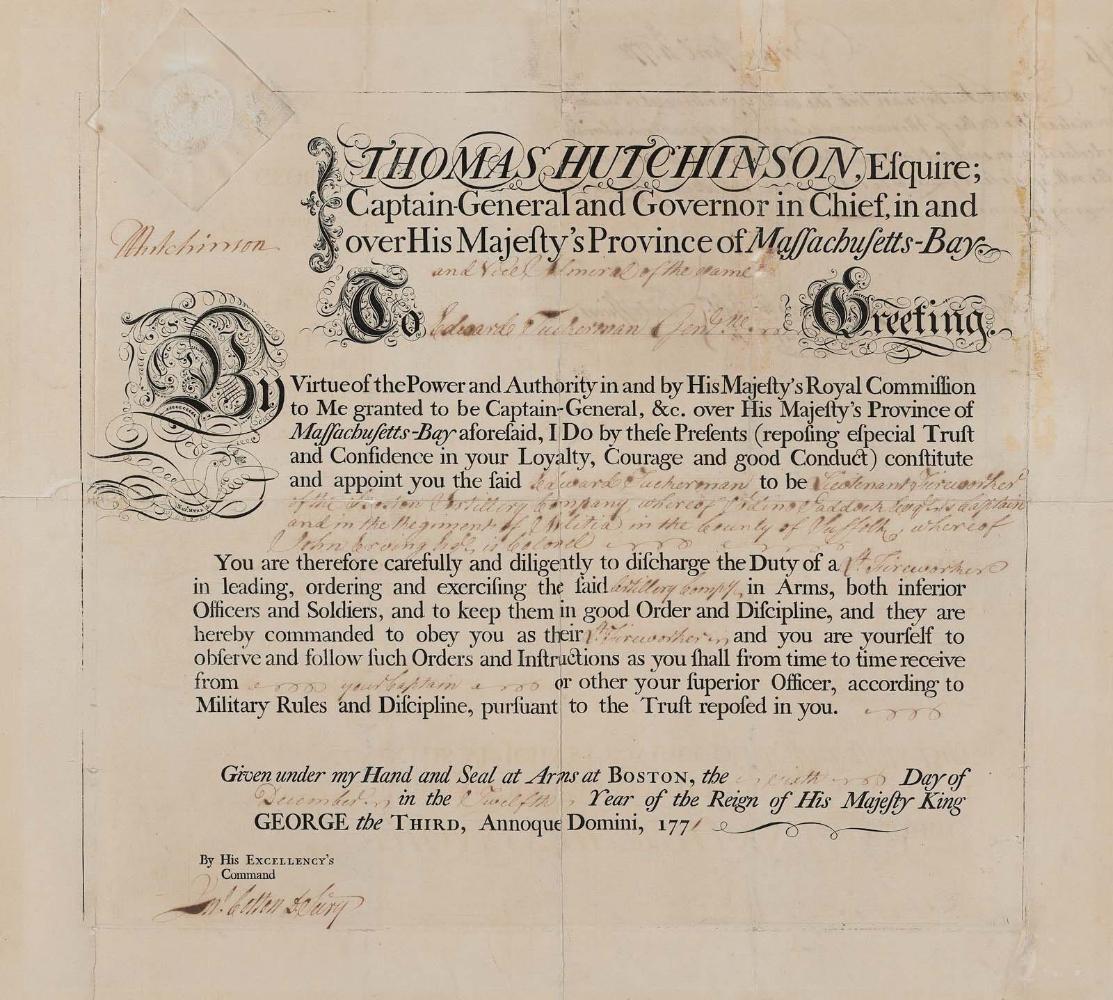 THOMAS HUTCHINSON, Eſquire;
Captain-General and Governor in Chief, in and
over His Majeſty's Province of Maſſachuſetts-Bay
Hutchinson
and Vice Admiral of the same
To Edward Tuckerman Gent. Greeting.
By Virtue of the Power and Authority in and by His Majeſty's Royal Commiſſion
to Me granted to be Captain-General, &c. over His Majeſty's Province of
Maſſachuſetts-Bay aforeſaid, I Do by theſe Preſents (repoſing eſpecial Truſt
and Confidence in your Loyalty, Courage and good Conduct) conſtitute
and appoint you the ſaid Edward Tuckerman to be Lieutenant Fireworker
of the Boston Artillery Company whereof Adino Paddock Esqr. is Captain
and in the Regiment of Militia in the County of Suffolk, whereof
John Erving Esqr. is Colonel
You are therefore carefully and diligently to diſcharge the Duty of a Lt. Fireworker
in leading, ordering and exerciſing the ſaid Artillery Compy. in Arms, both inferior
Officers and Soldiers, and to keep them in good Order and Diſcipline, and they are
hereby commanded to obey you as their Lt. Fireworker, and you are yourſelf to
obſerve and follow ſuch Orders and Inſtructions as you ſhall from time to time receive
from your Captain or other your ſuperior Officer, according to
Military Rules and Diſcipline, purſuant to the Truſt repoſed in you.
Given under my Hand and Seal at Arms at BOSTON, the sixth Day of
December in the Twelfth Year of the Reign of His Majeſty King
GEORGE the THIRD, Annoque Domini, 1771
By His EXCELLENCY'S
Command
Jno. Cotton D. Secry